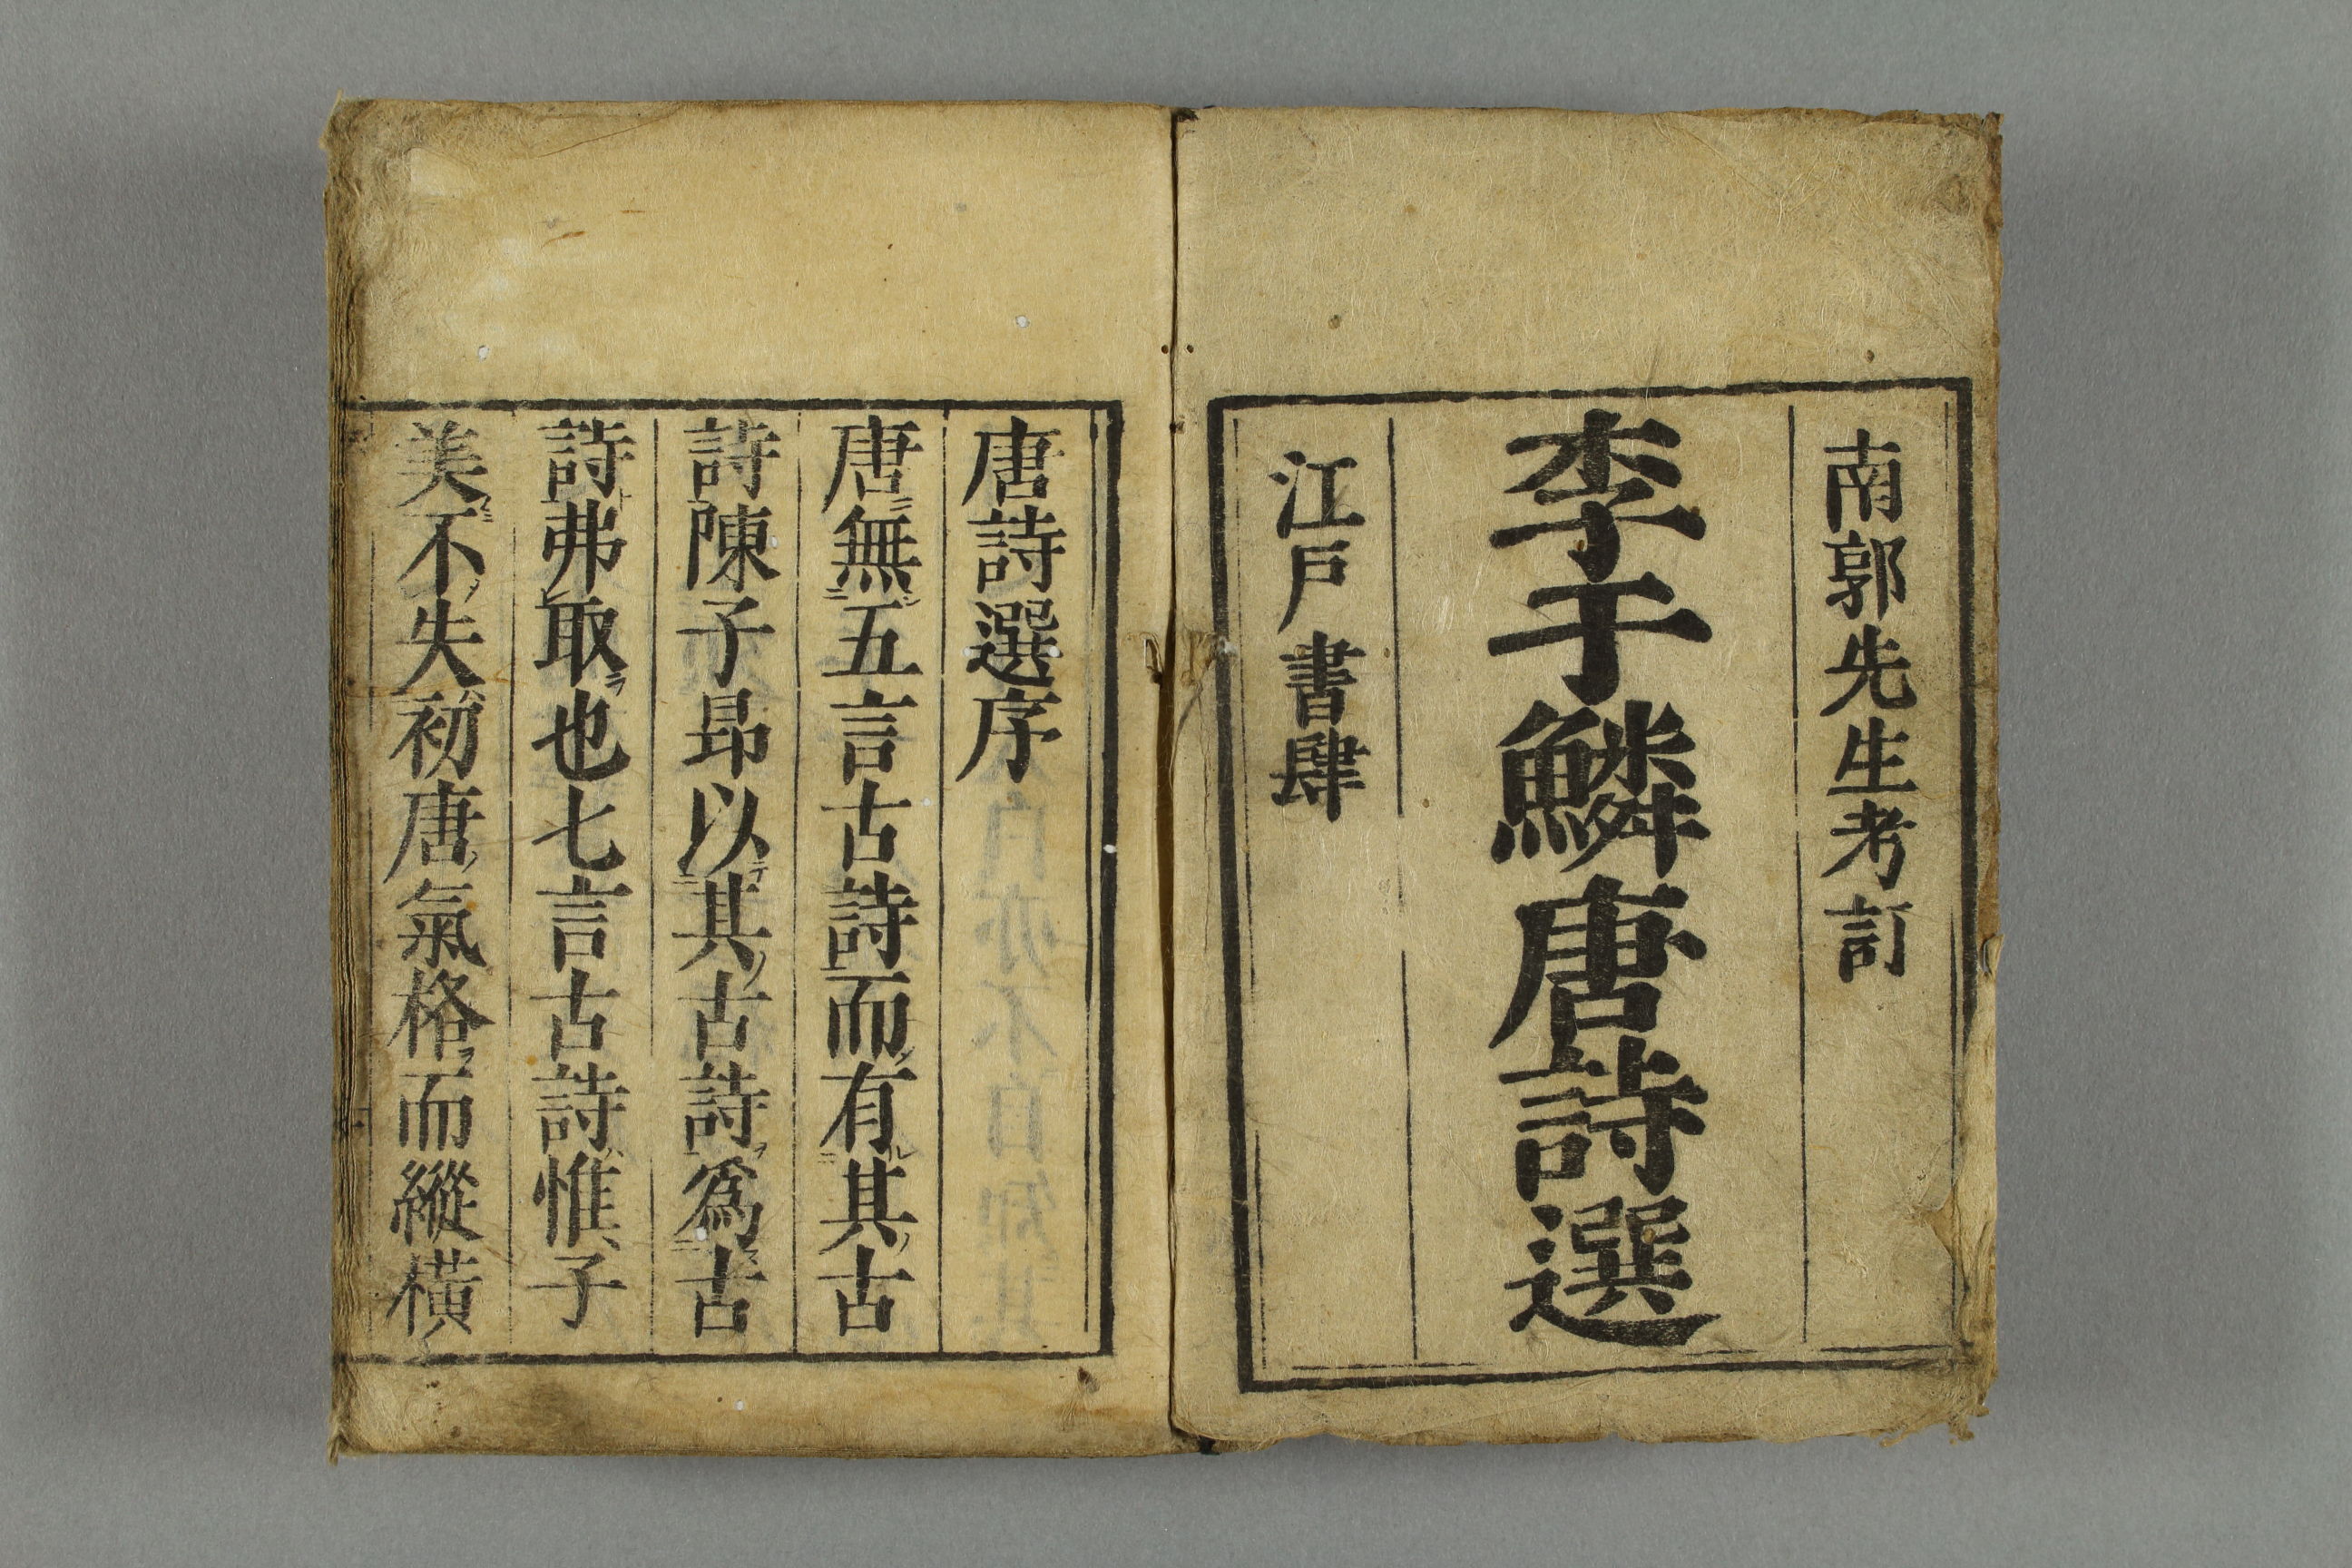 南郭先生考訂
李于鱗唐詩選
江戸書肆
唐詩選序
唐無五言古詩而有其古
詩陳子昻以其古詩爲古
詩弗取也七言古詩惟子
美不失初唐氣格而縱橫